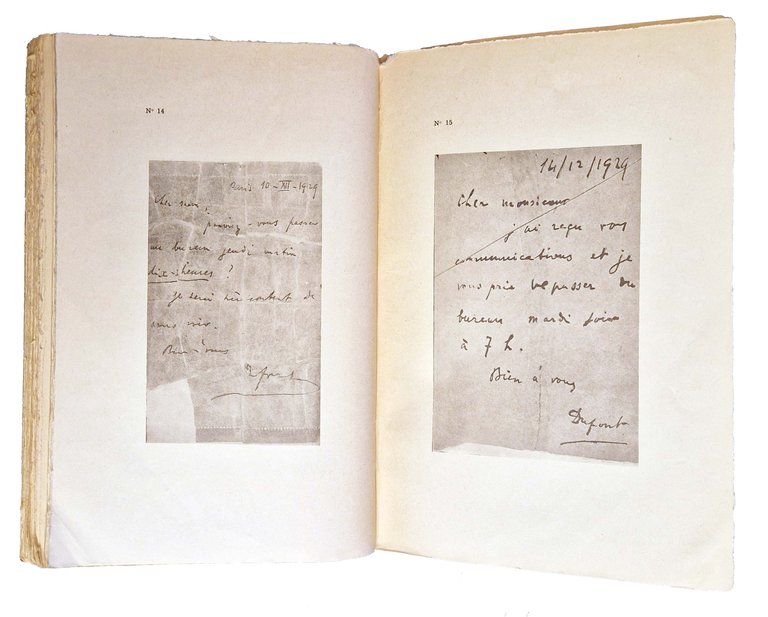 Nº 14
Paris 10-XII-1929
Cher mon,
pouvez-vous passer
au bureau jeudi matin
dix-heures ?
je serai très content de
vous voir.
Bien à vous
Nº 15
14/12/1929
Cher monsieur
j'ai reçu vos
communications et je
vous prie de passer au
bureau mardi soir
à 7 h.
Bien à vous
Dufont